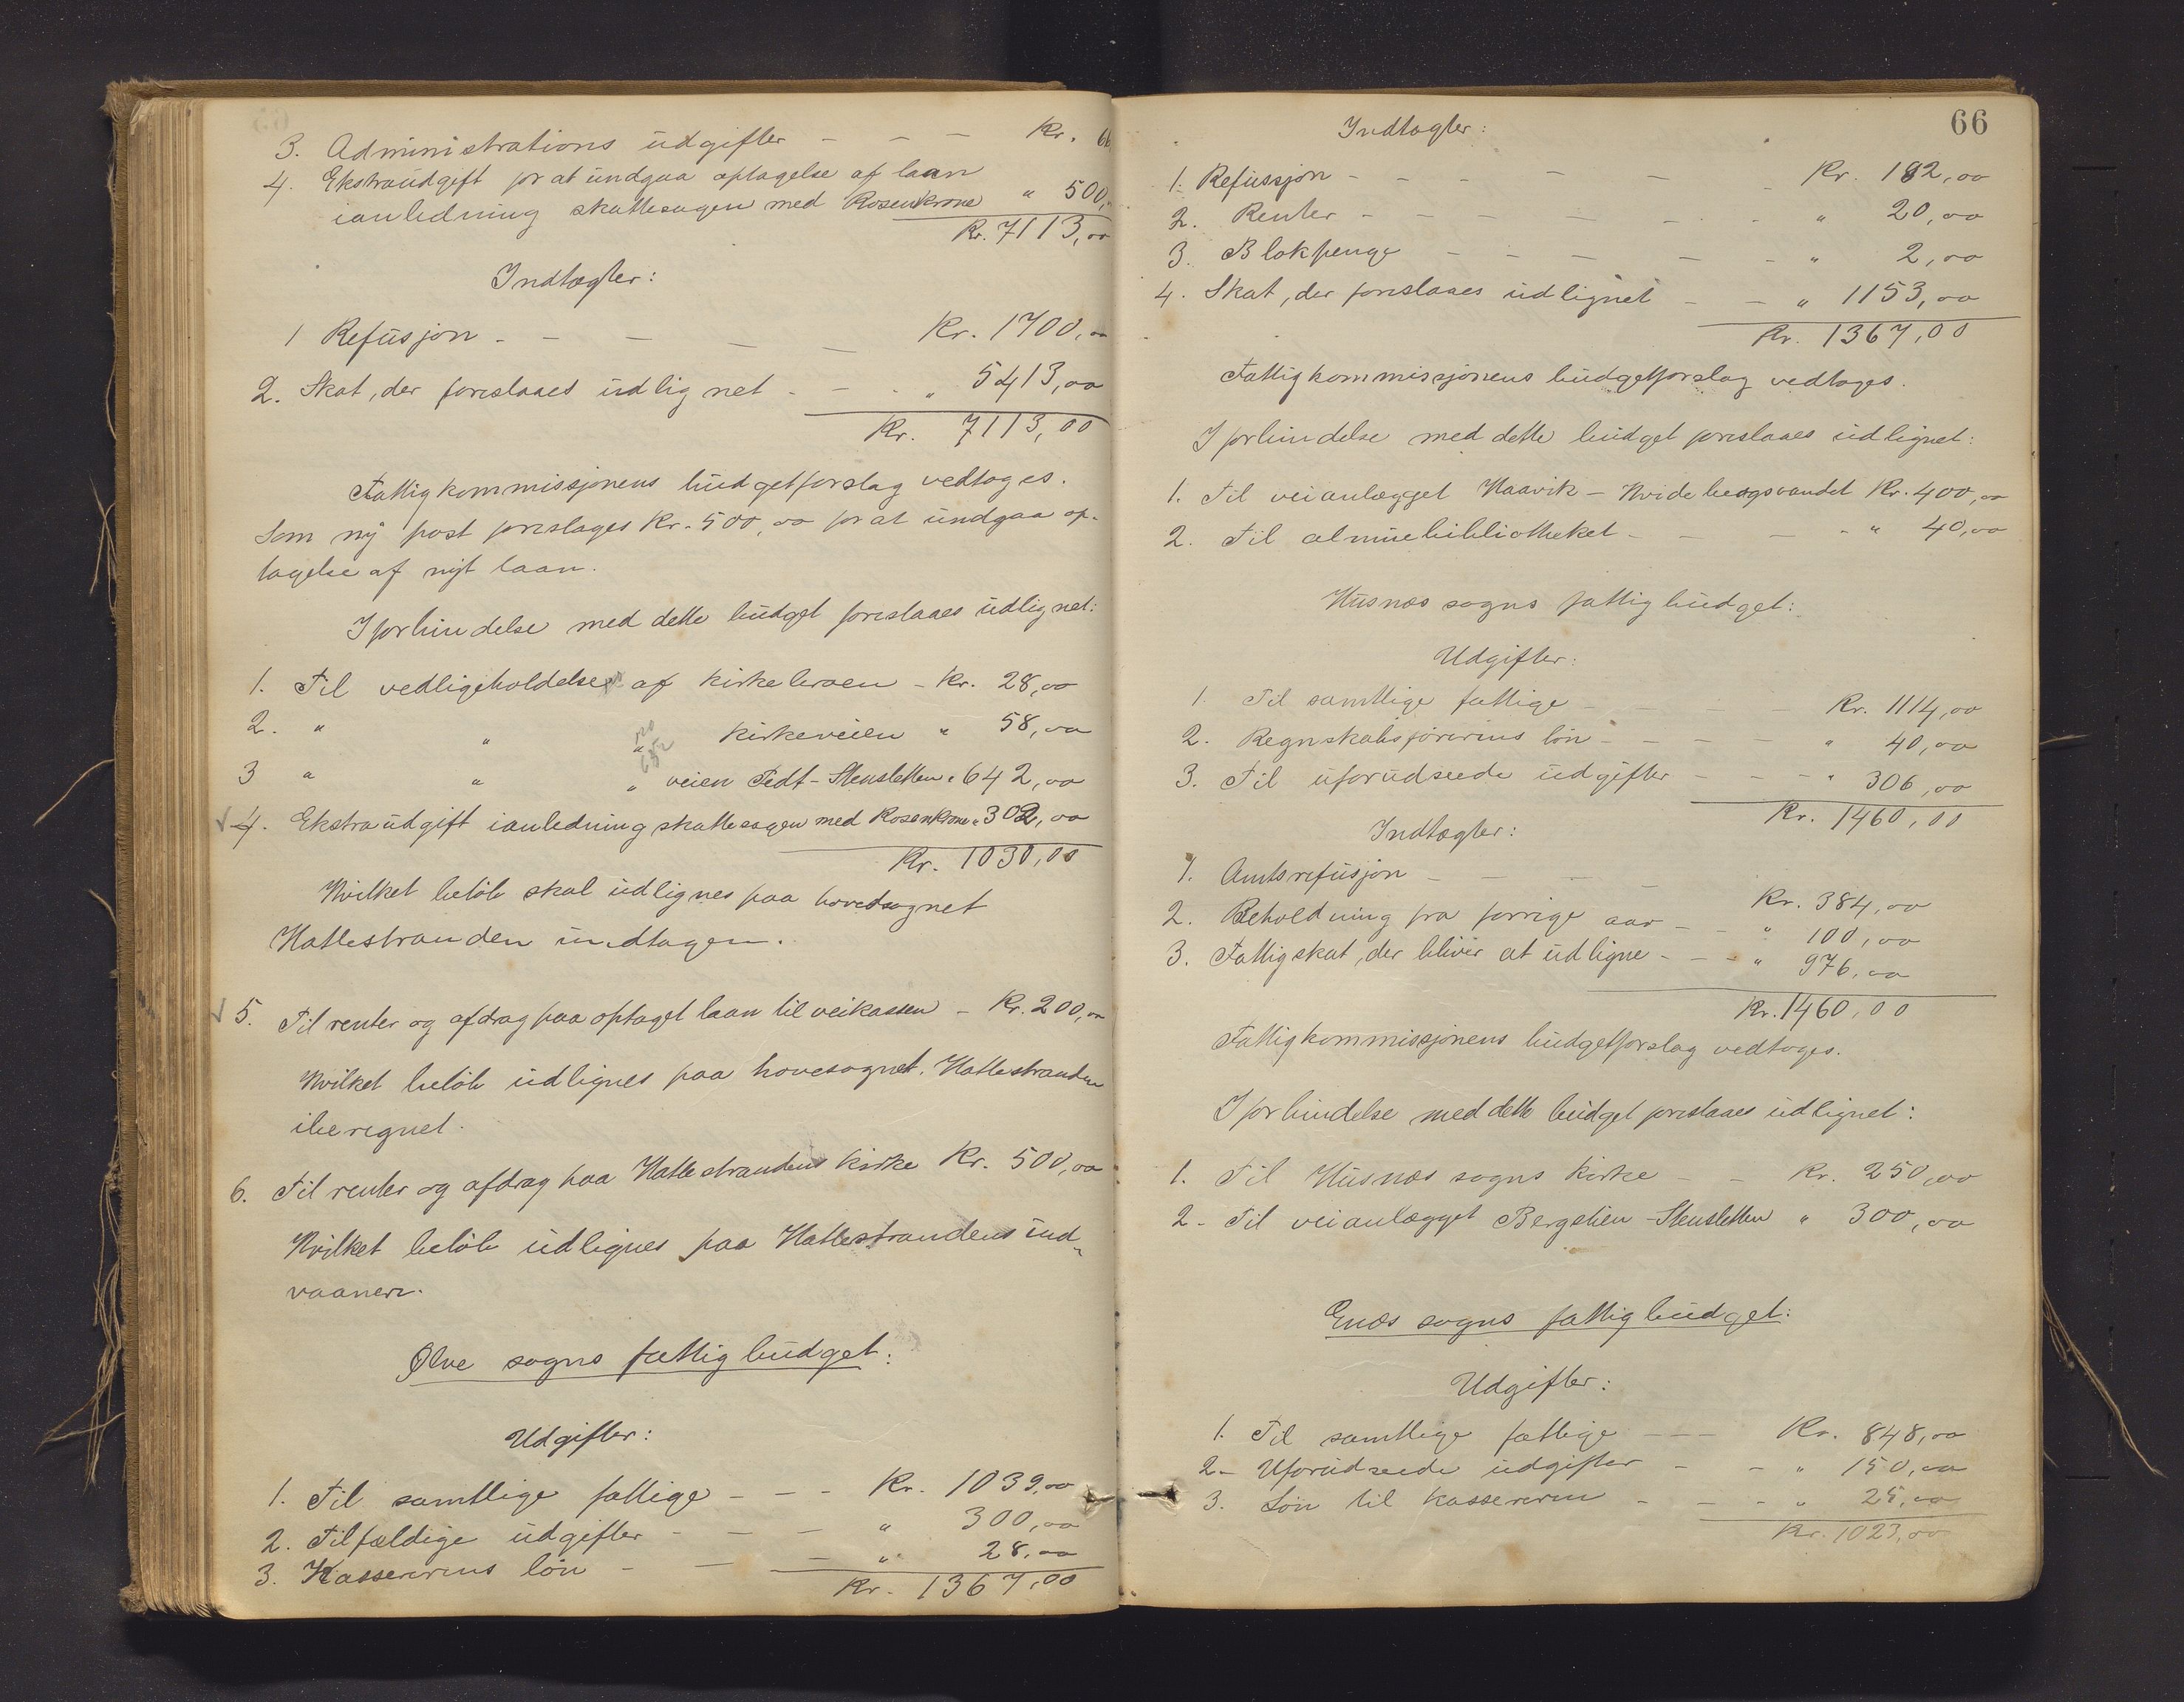 3. Administrations udgifter - - - Kr. 66
4. Ekstraudgift for at undgaa optagelse af laan
ianledning skattesagen med Rosenkrone " 500,"
Kr. 7113,00
Indtægter:
1 Refusjon - - - - - Kr. 1700,00
2. Skat, der foreslaaes udlignet - - - " 5413,00
Kr. 7113,00
Fattigkommissjonens budgetforslag vedtoges.
Som ny post foreslages Kr. 500,00 for at undgaa op-
tagelse af nyt laan.
I forbindelse med dette budget foreslaaes udlignet:
1. Til vedligeholdelse af kirkebroen - Kr. 28,00
2. " " " kirkeveien " 58,00
3 " " " veien Tedt-Stensletten " 642,00
4. Ekstraudgift ianledning skattesagen med Rosenkrone " 302,00
Kr. 1030,00
Hvilket beløb skal udlignes paa hovedsognet
Hattestranden undtagen.
5. Til renter og afdrag paa optaget laan til veikassen - Kr. 200,00
Hvilket beløb udlignes paa hovesognet. Hattestranden
iberegnet.
6. Til renter og afdrag paa Hattestrandens kirke Kr. 500,00
Hvilket beløb udlignes paa Hattestrandens ind-
vaanere.
Ølve sogns fattigbudget:
Udgifter:
1. Til samtlige fattige - - - Kr. 1039,00
2. Tilfældige udgifter - - - " 300,00
3. Kassererens løn - - - " 28,00
Kr. 1367,00
66
Indtægter:
1. Refussjon - - - - - - Kr. 192,00
2. Renter - - - - - - - " 20,00
3. Blokpenge - - - - - - " 2,00
4. Skat, der foreslaaes udlignet - - " 1153,00
Kr. 1367,00
Fattigkommissjonens budgetforslag vedtoges.
I forbindelse med dette budget foreslaaes udlignet:
1. Til veianlægget Haavik - Hvidebergsvandet Kr. 400,00
2. Til almuebibliotheket - - - - " 40,00
Husnæs sogns fattigbudget:
Udgifter:
1. Til samtlige fattige - - - - Kr. 1114,00
2. Regnskabsførerens løn - - - - " 40,00
3. Til uforudseede udgifter - - - " 306,00
Kr. 1460,00
Indtægter:
1. Amtsrefusjon - - - - Kr. 384,00
2. Beholdning fra forrige aar - - " 100,00
3. Fattigskat, der bliver at udligne - - - " 976,00
Kr. 1460,00
Fattigkommissjonens budgetforslag vedtoges.
I forbindelse med dette budget foreslaaes udlignet:
1. Til Husnæs sogns kirke - - Kr. 250,00
2. Til veianlægget Bergstien - Stensletten " 300,00
Enæs sogns fattigbudget:
Udgifter:
1. Til samtlige fattige - - - Kr. 848,00
2. Uforudseede udgifter - - " 150,00
3. Løn til kassereren - - - " 25,00
Kr. 1023,00